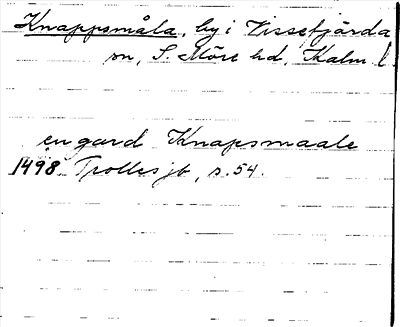 Knappsmåla, by i Vissefjärda
sn, S. Möre hd, Kalm l.
en gard Knapsmaale
1498 Trolles jb, s. 54.